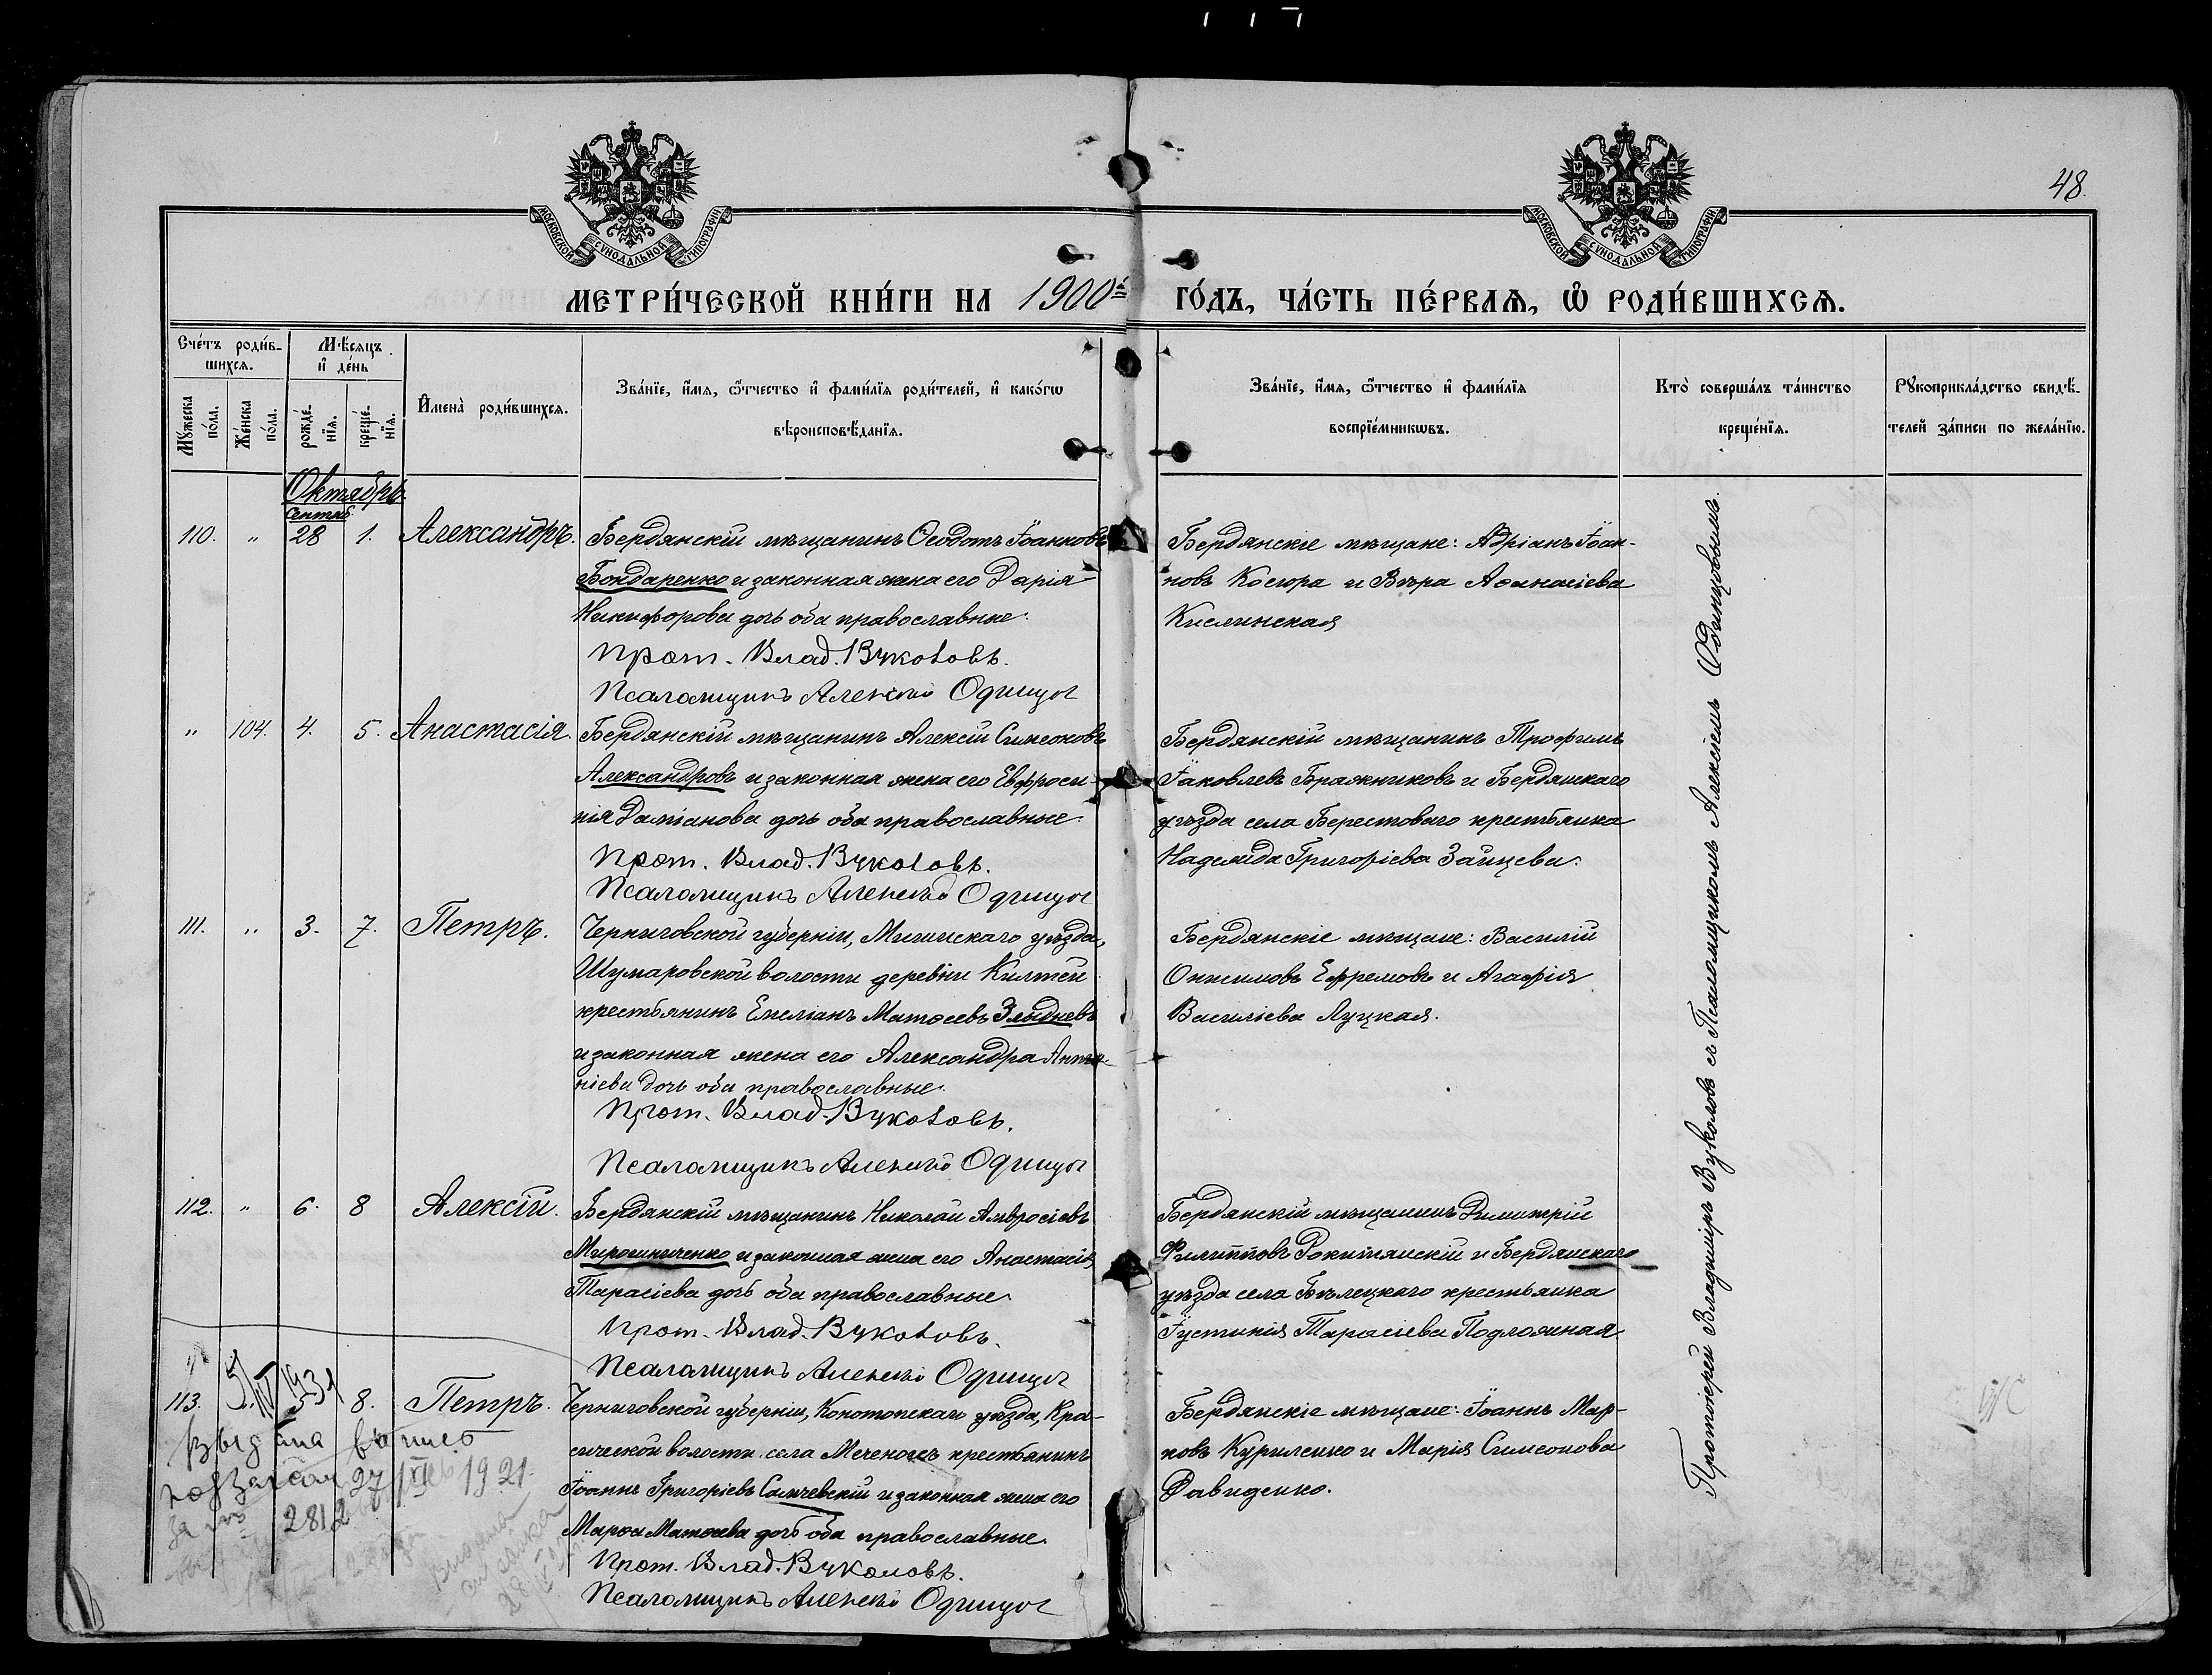 48.
МОСКОВСКОЙ СѴНОДАЛЬНОЙ ТИПОГРАФІИ
МОСКОВСКОЙ СѴНОДАЛЬНОЙ ТИПОГРАФІИ
МЕТРИ́ЧЕСКОЙ КНИ́ГИ НА 1900й ГО́ДЪ, ЧА́СТЬ ПЕ́РВАѦ, Ѡ РОДИ́ВШИХСѦ.
Сче́тъ роди́в-
шихсѧ.
Мѣ́сяцъ
и де́нь
Мꙋ́жеска по́ла.
Же́нска по́ла.
рожде́-
нїѧ.
креще́-
нїѧ.
И҆мена̀ роди́вшихсѧ.
Зва́нїе, и҆́мѧ, ѻ҆́тчество и҆ фами́лїѧ роди́телей, и҆ како́гѡ
вѣроисповѣ́данїѧ.
Зва́нїе, и҆́мѧ, ѻ҆́тчество и҆ фами́лїѧ
воспрїе́мникѡвъ.
Кто̀ соверша́лъ та́инство
креще́нїѧ.
Рꙋкоприкла́дство свидѣ́-
телей за́писи по жела́нїю.
Октябрь
Сентяб.
110. " 28 1. Александръ. Бердянскій мѣщанинъ Ѳеодотъ Іоанновъ
Бондаренко и законная жена его Дарія
Никифорова дочь оба православные.
Прот. Влад. Вуколовъ.
Псаломщикъ Алексѣй Одинцов
Бердянскіе мѣщане: Адріанъ Іоан-
новъ Косюра и Вѣра Аѳанасіева
Кислинская
" 104. 4. 5. Анастасія. Бердянскій мѣщанинъ Алексій Симеоновъ
Александровъ и законная жена его Евфроси-
нія Даміанова дочь оба православные.
Прот. Влад. Вуколовъ.
Псаломщикъ Алексѣй Одинцов
Бердянскій мѣщанинъ Трофимъ
Іаковлевъ Бражниковъ и Бердянскаго
уѣзда села Берестоваго крестьянка
Надежда Григоріева Зайцева.
111. " 3. 7. Петръ. Черниговской губерніи, Мглинскаго уѣзда,
Шумаровской волости деревни
крестьянинъ Емеліанъ Матѳеевъ Злыдневъ
и законная жена его Александра Анто-
ніева дочь оба православные.
Прот. Влад. Вуколовъ.
Псаломщикъ Алексѣй Одинцов
Бердянскіе мѣщане: Василій
Онисимовъ Ефремовъ и Агафія
Василіева Луцкая.
112. " 6. 8 Алексій. Бердянскій мѣщанинъ Николай Амвросіевъ
Мирошниченко и законная жена его Анастасія
Тарасіева дочь оба православные.
Прот. Влад. Вуколовъ.
Псаломщикъ Алексѣй Одинцов
Бердянскій мѣщанинъ Димитрій
Филипповъ Рокитянскій и Бердянскаго
уѣзда села Бѣлецкаго крестьянка
Іустинія Тарасіева Подложная
113. 8. Петръ. Черниговской губерніи, Конотопскаго уѣзда, Кра-
волости села крестьянинъ
Іоаннъ Григоріевъ и законная жена его
Марѳа Матѳеева дочь оба православные.
Прот. Влад. Вуколовъ.
Псаломщикъ Алексѣй Одинцов
Бердянскіе мѣщане: Іоаннъ Мар-
ковъ Куриленко и Марія Симеонова
Давиденко.
Протоіерей Владиміръ Вуколовъ съ Псаломщикомъ Алексіемъ Одинцовымъ.
1931
27 1921
за № 2812